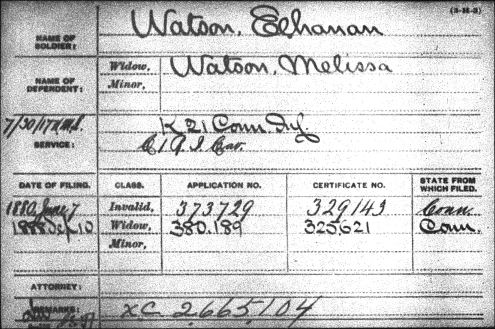 (3-H-3)
NAME OF SOLDIER: Watson, Elhanan
NAME OF DEPENDENT: Widow, Watson, Melissa
Minor,
SERVICE: K 21 Conn. Inf.
C 1 R I Cav.
DATE OF FILING. CLASS. APPLICATION NO. CERTIFICATE NO. STATE FROM WHICH FILED.
1880 June 7 Invalid, 373729 329143 Conn.
1888 Sep 10 Widow, 380,189 325,621 Conn.
Minor,
ATTORNEY:
REMARKS: XC 2665,104